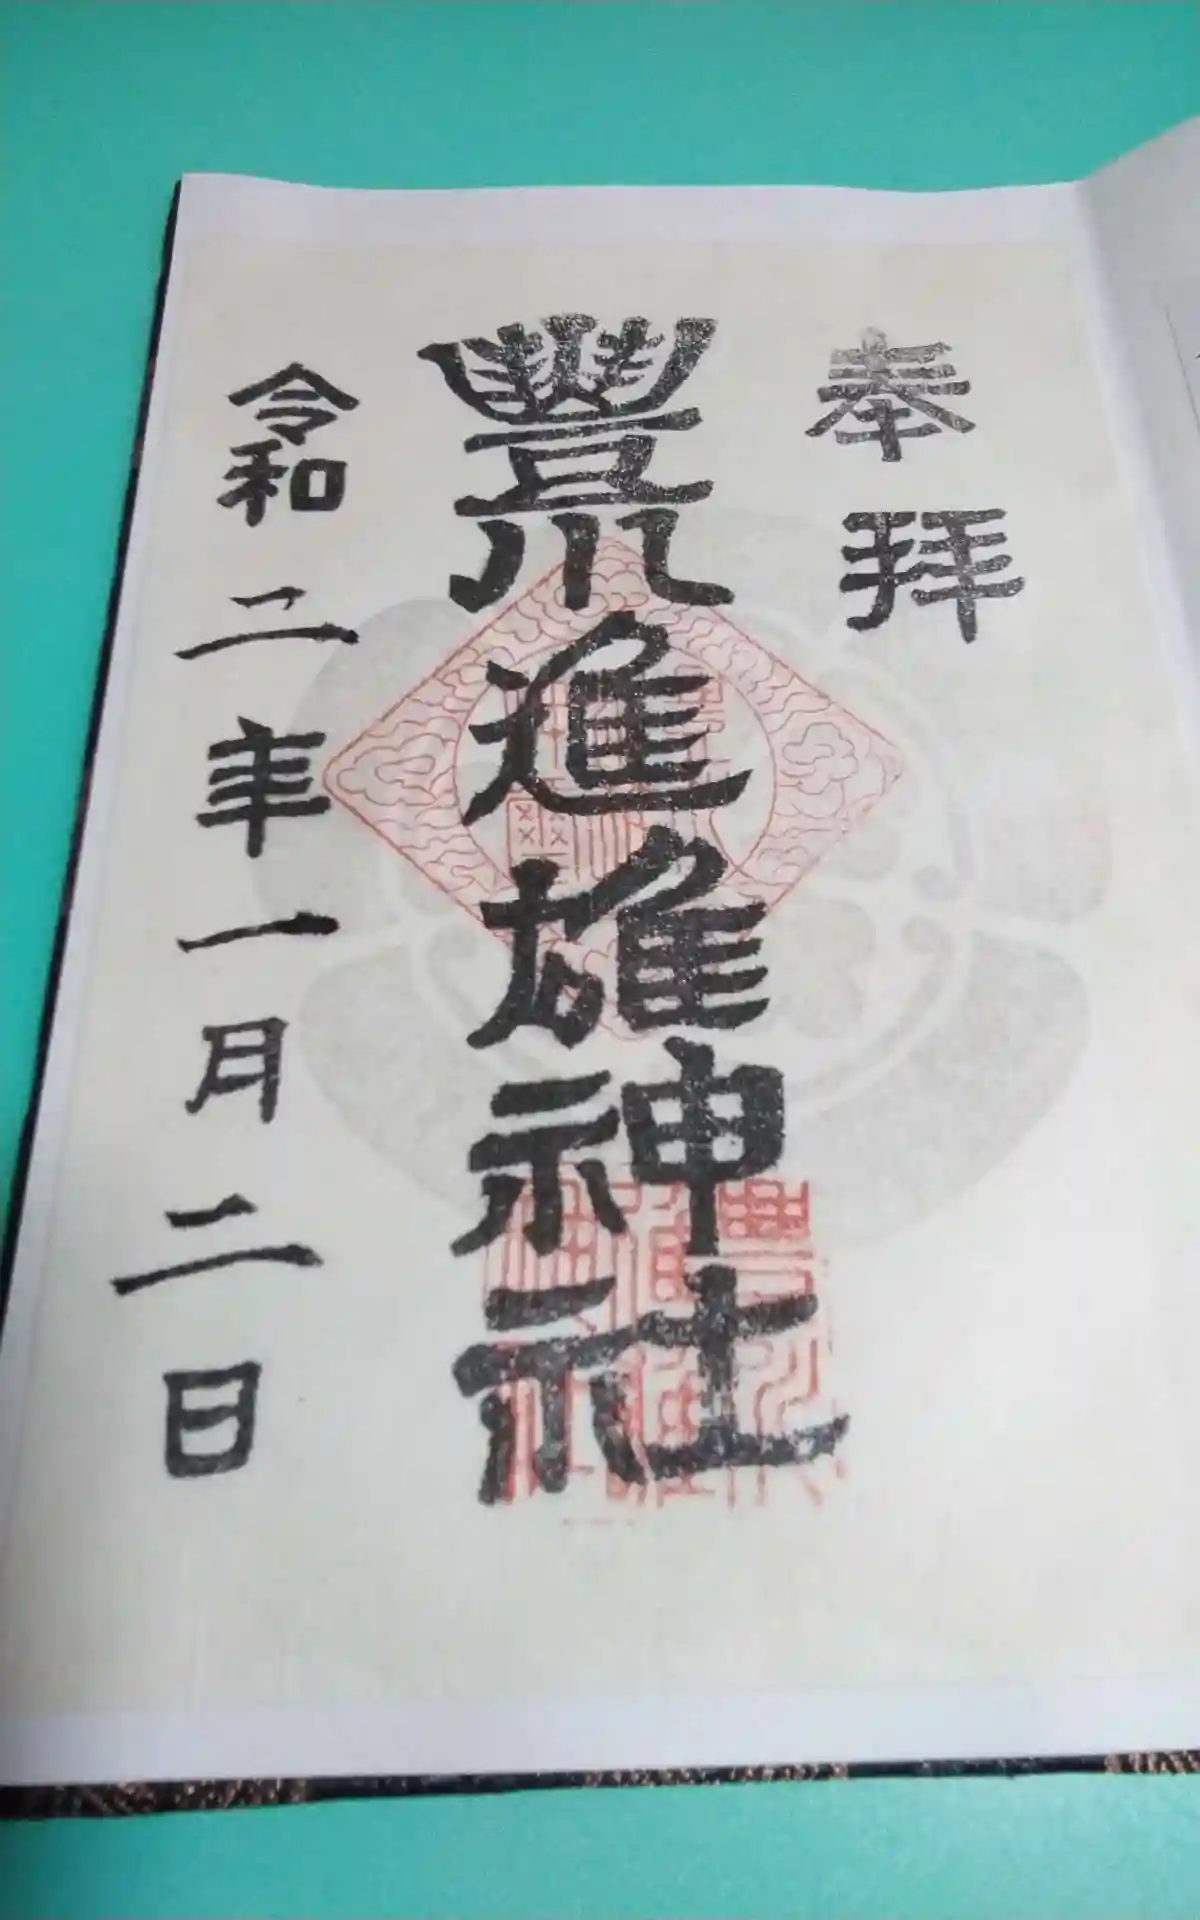 奉拝
豐川進雄神社
令和二年一月二日